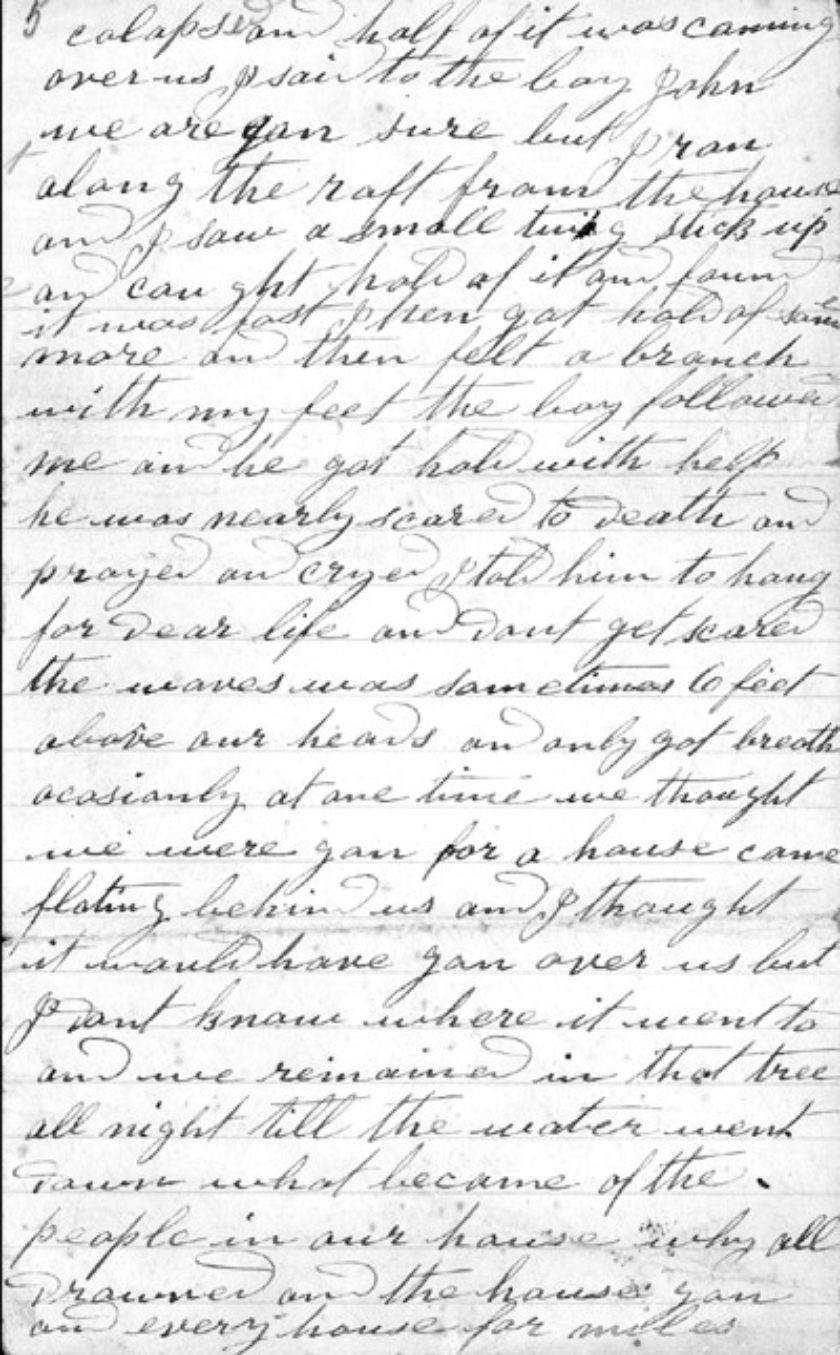 5 colapsed and half of it was coming
over us I said to the boy John
we are gon sure but I ran
along the raft from the house
and I saw a small twig stick up
and caught hold of it and found
it was fast I then got hold of some
more and then felt a branch
with my feet the boy followed
me and he got hold with help
he was nearly scared to death and
prayed and cryed I told him to hang
for dear life and dont get scared
the waves was sometimes 6 feet
above our heads and only got breath
ocasionly at one time we thought
we were gon for a house came
floting behind us and I thought
it would have gon over us but
I dont know where it went to
and we remained in that tree
all night till the water went
down what became of the
people in our house why all
drowned and the house gon
and every house for miles